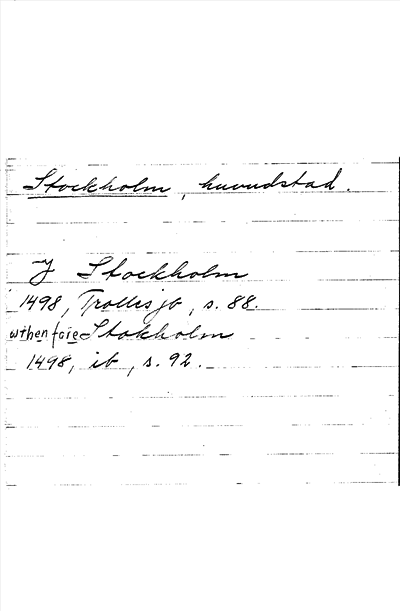 Stockholm, huvudstad.
J Stockholm
1498, Trolles jb, s. 88.
wthen fore Stokholm
1498, ib, s. 92.